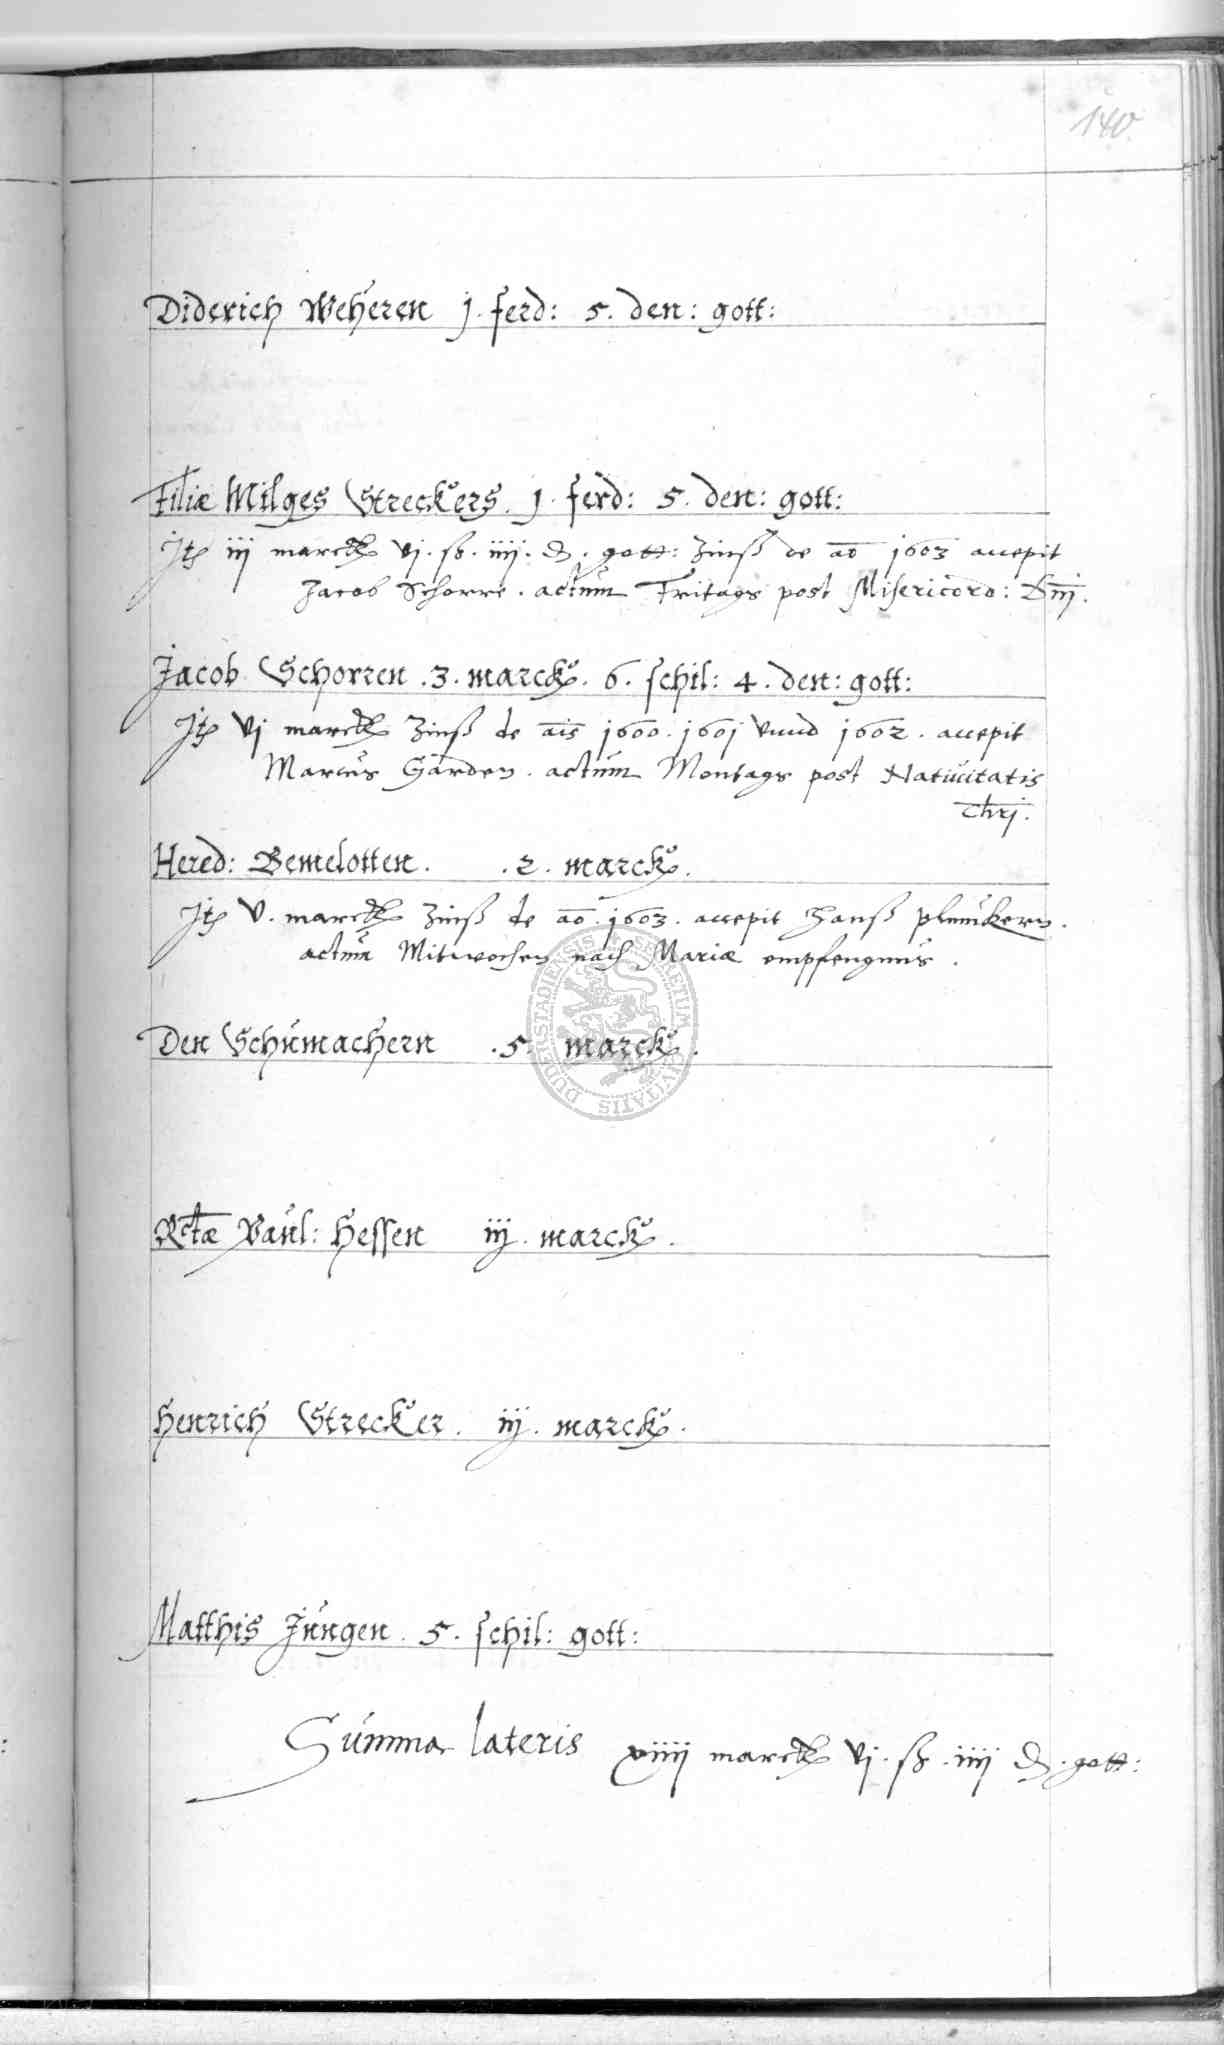 140
Diderich Weheren j. ferd: 5. den: gott:
Filiæ Milges Streckers. j. ferd: 5. den: gott:
Jtem iij marck vj. ß. iiij. d. gott: Zinß de ao 1603 accepit
Jacob Schorre. actum Fritags post Misericord: Dnj.
Jacob Schorren .3. marck. 6. schil: 4. den: gott:
Jtem vj marck Zinß de ais 1600. 1601 vnnd 1602. accepit
Marcus Garden. actum Montags post Natiuitatis
Chrj.
Hered: Bemelotten. .2. marck.
Jtem v. marck Zinß de ao. 1603. accepit Hanß
actum Mitwochen nach Mariæ empfengnus.
Den Schumachern .5. marck.
Rctæ Paul: Hessen iij. marck.
Henrich Strecker. iij. marck.
Matthis Jungen. 5. schil: gott:
Summa lateris xiiij marck vj. ß. iiij d. gott:
SECRETUM CIVITATIS DUDERSTADIENSIS